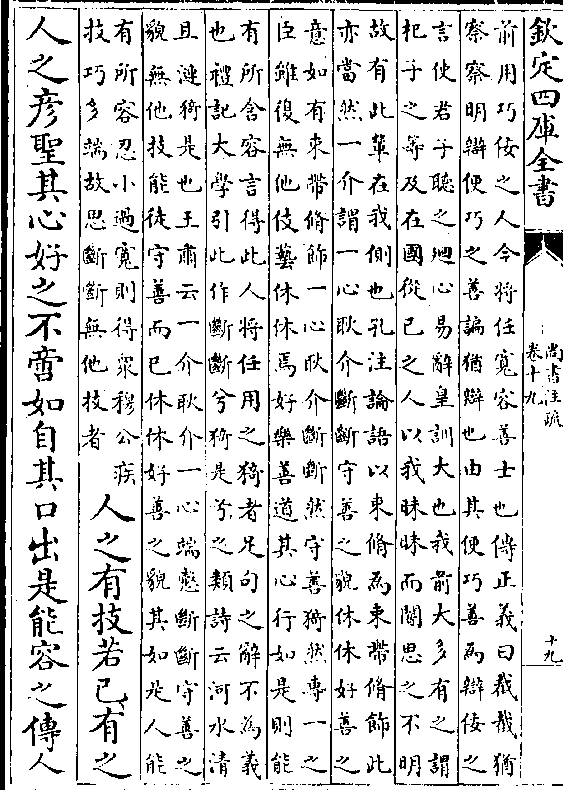 欽定四庫全書
尚書注疏
卷十九
十九
前用巧佞之人今將任寬容善士也傳正義曰截截猶
察察明辯便巧之善諞猶辯也由其便巧善為辯佞之
言使君子聽之廻心易辭皇訓大也我前大多有之謂
杞子之等及在國從己之人以我昧昧而闇思之不明
故有此輩在我側也孔注論語以束脩為束帶脩飾此
亦當然一介謂一心耿介斷斷守善之貌休休好善之
意如有束帶脩飾一心耿介斷斷然守善猗然專一之
臣雖復無他伎藝休休焉好樂善道其心行如是則能
有所含容言得此人將任用之猗者足句之辭不為義
也禮記大學引此作斷斷兮猗是兮之類詩云河水清
且漣猗是也王肅云一介耿介一心端慤斷斷守善之
貌無他技能徒守善而已休休好善之貌其如是人能
有所容忍小過寬則得衆穆公疾
技巧多端故思斷斷無他技者
人之有技若已有之
人之彦聖其心好之不啻如自其口出是能容之傳人